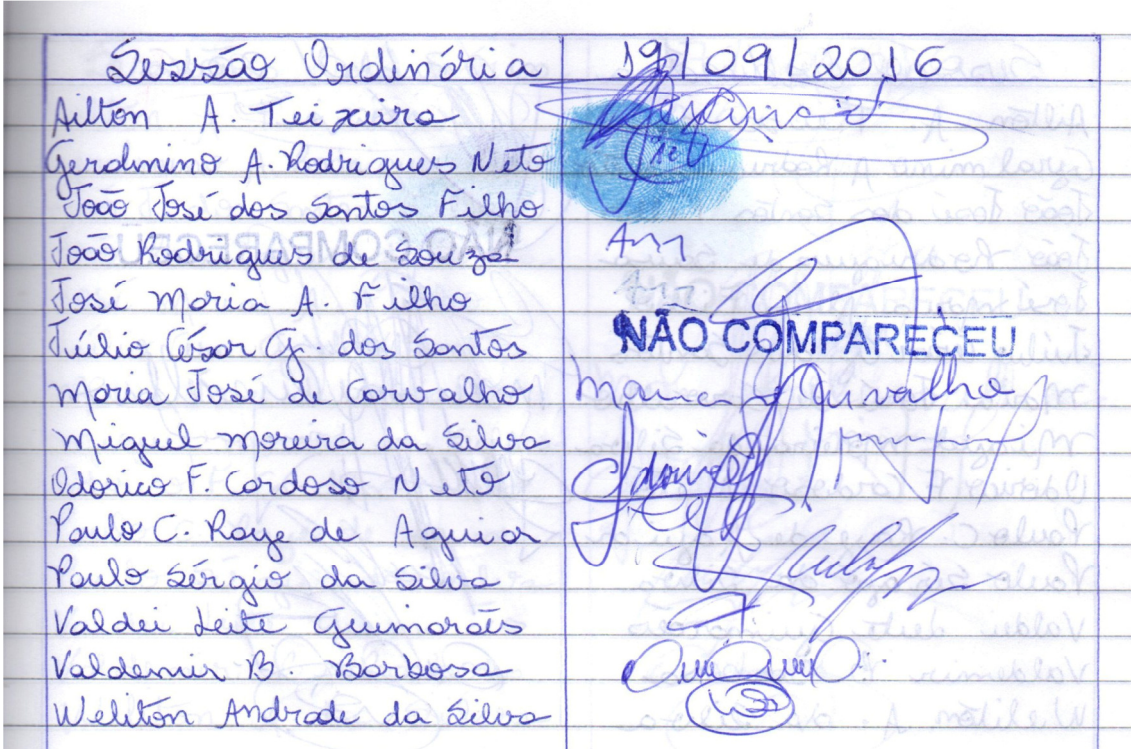 Sessão Ordinária 19/09/2016
Ailton A. Teixeira
Gerolmino A. Rodrigues Neto
João José dos Santos Filho
João Rodrigues de Souza
José Maria A. Filho
Júlio César G. dos Santos NÃO COMPARECEU
Maria José de Carvalho Carvalho
Miguel Moreira da Silva
Odorico F. Cardoso Neto
Paulo C. Raye de Aguiar
Paulo Sérgio da Silva
Valdei Leite Guimarães
Valdemir B. Barbosa
Weliton Andrade da Silva